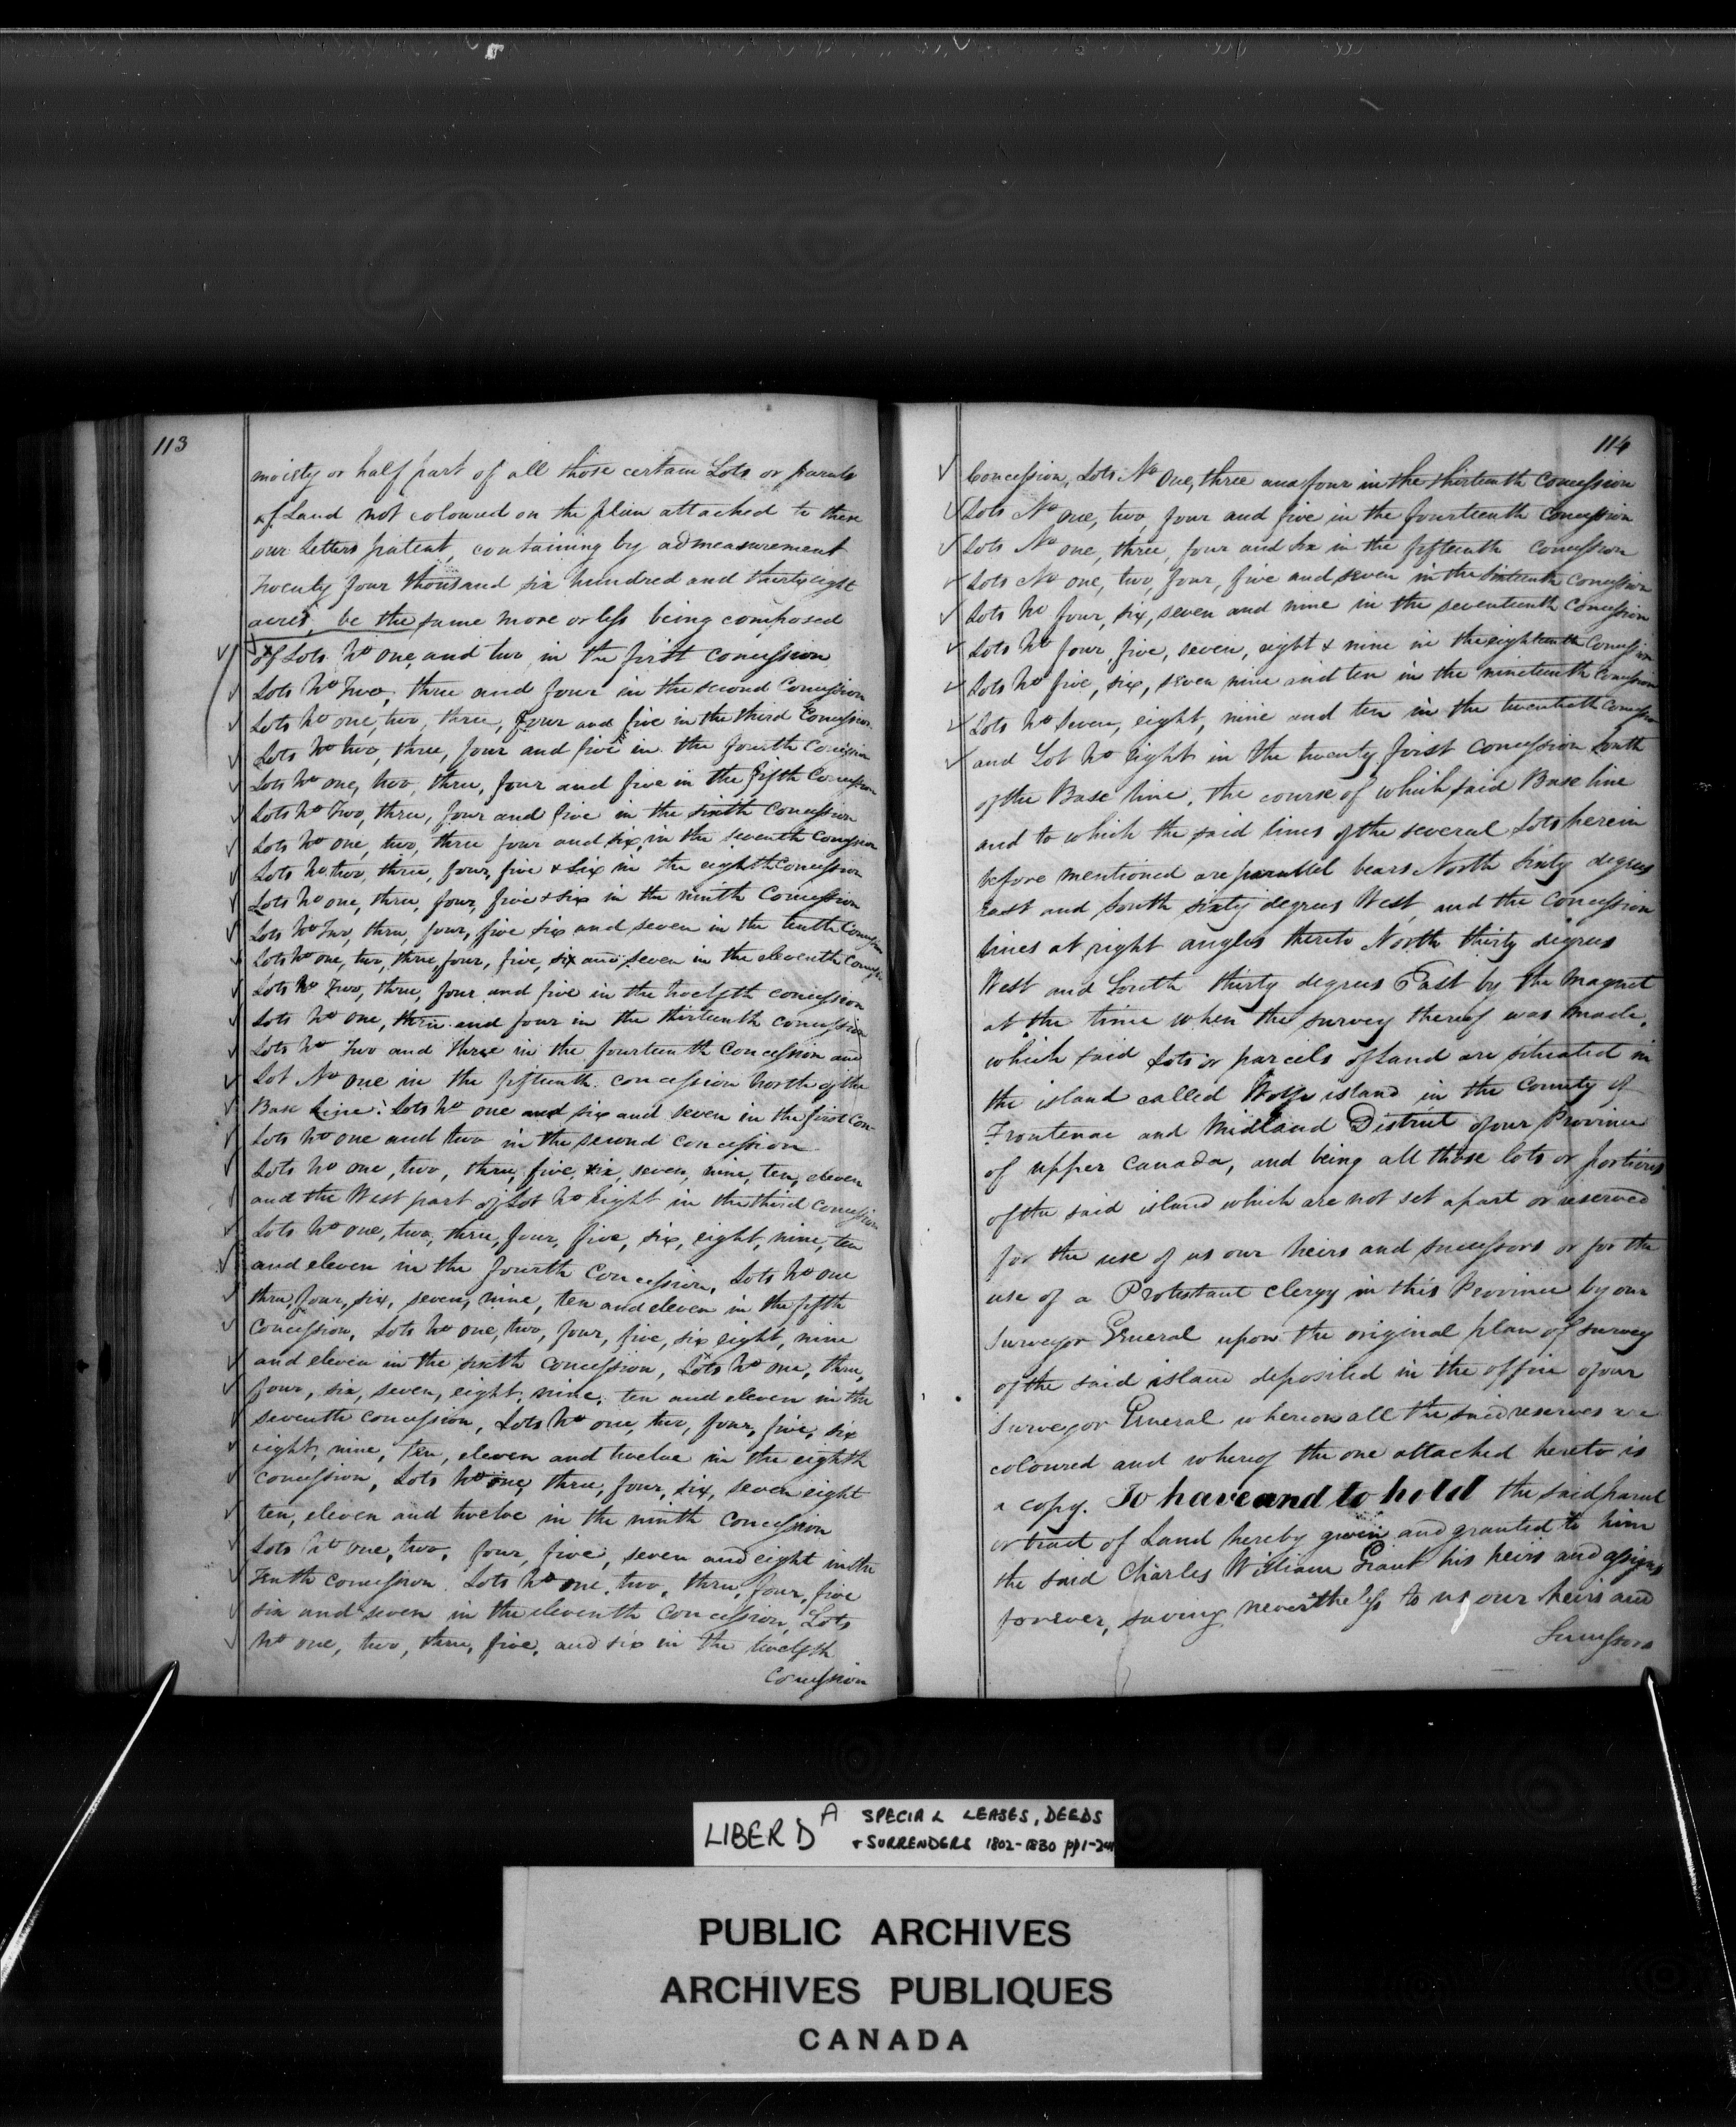 113
moiety or half part of all those certain Lots or parcels
of Land not coloured on the plan attached to these
our Letters patent, containing by admeasurement
Twenty four thousand six hundred and thirty eight
acres, be the same more or less being composed
of Lots No one, and two in the first Concession
Lots No Two, three and four in the second Concession
Lots No one, two, three, four and five in the third Concession
Lots No two, three, four and five in the fourth Concession
Lots No one, two, three, four and five in the fifth Concession
Lots No Two, three, four and five in the sixth Concession
Lots No one, two, three four and six in the seventh Concession
Lots No two, three, four, five & six in the eighth Concession
Lots No one, three, four, five & six in the ninth Concession
Lots No Two, three, four, five six and seven in the tenth Concession
Lots No one, two, three, four, five, six and seven in the eleventh Concession
Lots No Two, three, four and five in the twelfth concession
Lots No one, three and four in the thirteenth concession
Lots No Two and three in the fourteenth Concession and
Lot No one in the fifteenth concession North of the
Base Line: Lots No one and six and seven in the first Con-
Lots No one and two in the second concession
Lots No one, two, three, five, six, seven, nine, ten, eleven
and the West part of Lot No Eight in the third Concession
Lots No one, two, three, four, five, six, eight, nine, ten
and eleven in the fourth Concession, Lots No One
three, four, six, seven, nine, ten and eleven in the fifth
Concession, Lots No one, two, four, five, six eight, nine
and eleven in the sixth concession, Lots No one, three,
four, six, seven, eight, nine, ten and eleven in the
seventh concession, Lots No one, two, four, five, six
eight, nine, ten, eleven and twelve in the eighth
Concession, Lots No one, three, four, six, seven eight
ten, eleven and twelve in the ninth Concession
Lots No One, two, four, five, seven and eight in the
Tenth concession. Lots No one, two, three, four, five
six and seven in the eleventh Concession, Lots
No one, two, three, five, and six in the twelfth
Concession
114
Concession, Lots No One, three and four in the thirteenth Concession
Lots No one, two, four and five in the fourteenth Concession
Lots No one, three, four and six in the fifteenth Concession
Lots No one, two, four, five and seven in the sixteenth Concession
Lots No four, six, seven and nine in the seventeenth Concession
Lots No four, five, seven, eight & nine in the eighteenth Concession
Lots No five, six, seven nine and ten in the nineteenth Concession
Lots No Seven, eight, nine and ten in the twentieth Concession
and Lot No Eight in the twenty first Concession South
of the Base line, the course of which said Base line
and to which the said lines of the several Lots herein
before mentioned are parallel bears North Sixty degrees
East and South sixty degrees West, and the Concession
lines at right angles thereto North thirty degrees
West and South thirty degrees East by the magnet
at the time when the survey thereof was made,
which said Lots or parcels of Land are situated in
the island called Wolfe island in the County of
Frontenac and Midland District of our Province
of upper Canada, and being all those lots or portions
of the said island which are not set apart or reserved
for the use of us our heirs and successors or for the
use of a Protestant Clergy in this Province by our
Surveyor General upon the original plan of survey
of the said island deposited in the office of our
Surveyor General whereon all the said reserves are
coloured and whereof the one attached hereto is
a copy. To have and to hold the said parcel
or tract of Land hereby given and granted to him
the said Charles William Grant his heirs and assigns
forever, saving nevertheless to us, our heirs and
Successors
LIBER D A SPECIAL LEASES, DEEDS
& SURRENDERS 1802-1830 pp 1-241
PUBLIC ARCHIVES
ARCHIVES PUBLIQUES
CANADA